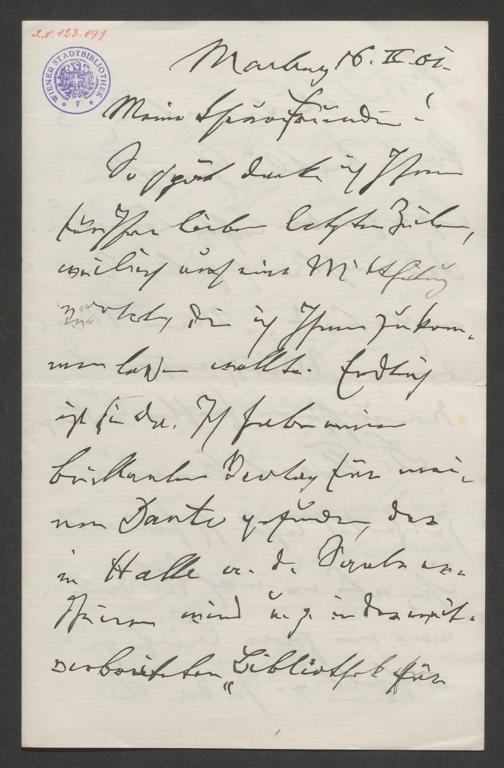 J.N. 123.191
WIENER STADTBIBLIOTHEK
7
Marburg 16. II 01.
Meine theure Freundin!
So spät danke ich Ihnen
für Ihre lieben letzten Zeilen,
weil ich auf eine Mittheilung
wartete, die ich Ihnen zukom-
men lassen wollte. Endlich
ist sie da. Ich habe einen
brillanten Verlag für mei-
nen Dante gefunden, der
in Halle a. d. Saale er-
scheinen wird u. z. in der weit-
verbreiteten „Bibliothek für